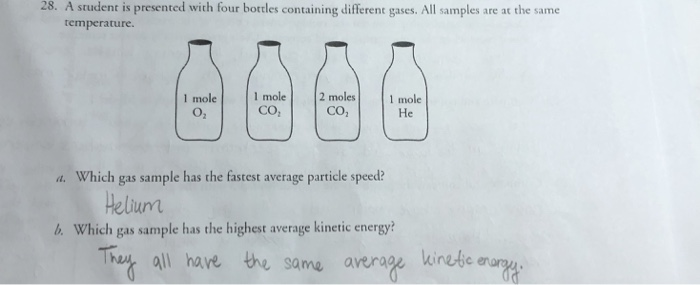 28. A student is presented with four bottles containing different gases. All samples are at the same
temperature.
1 mole
O₂
1 mole
CO₂
2 moles
CO₂
1 mole
He
a. Which gas sample has the fastest average particle speed?
Helium
b. Which gas sample has the highest average kinetic energy?
They all have the same average kinetic energy.